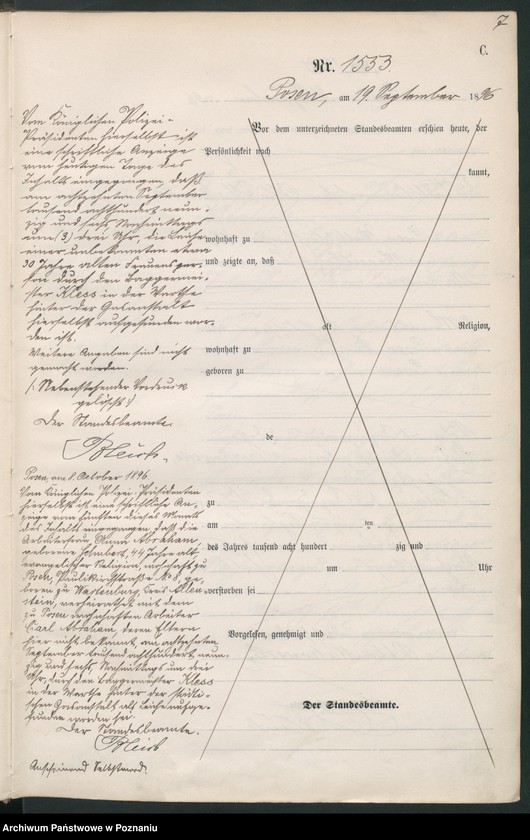 7
C.
Nr. 1553.
Posen, am 19. September 1896
Vom Königlichen Polizei-
Präsidenten hierselbst ist
eine schriftliche Anzeige
vom heutigen Tage des
Inhalts eingegangen, daß
am achtzehnten September
tausend achthundert neun-
zig und sechs Nachmittags
um (3) drei Uhr, die Leiche
einer unbekannten etwa
30 Jahre alten Frauensper-
son durch den Baggermei-
ster Kless in der Warthe
hinter der Gasanstalt
hierselbst aufgefunden wor-
den ist.
Weitere Angaben sind nicht
gemacht worden.
(: Nebenstehender Vordruck
gelöscht :)
Der Standesbeamte.
Posen, am 8. October 1896.
Vom Königlichen Polizei-Präsidenten
hierselbst ist eine schriftliche An-
zeige vom fünften dieses Monats
des Inhalts eingegangen, daß die
Arbeiterfrau Abraham,
geborene 44 Jahre alt,
evangelischer Religion, wohnhaft zu
Posen, Paulikirchstraße No 8, ge-
boren zu Wartenburg, Kreis Allen-
stein, verheirathet mit dem
zu Posen wohnhaften Arbeiter
Carl Abraham, deren Eltern
hier nicht bekannt, am achtzehnten
September tausend achthundert neun-
zig und sechs, Nachmittags um drei
Uhr, durch den Baggermeister Kless
in der Warthe hinter der städti-
schen Gasanstalt als Leiche aufge-
funden worden sei.
Der Standesbeamte.
Anscheinend Selbstmord.
Vor dem unterzeichneten Standesbeamten erschien heute, der
Persönlichkeit nach
kannt,
wohnhaft zu
und zeigte an, daß
alt Religion,
wohnhaft zu
geboren zu
de
zu
am ten
des Jahres tausend acht hundert zig und
um Uhr
verstorben sei
Vorgelesen, genehmigt und
Der Standesbeamte.
Archiwum Państwowe w Poznaniu